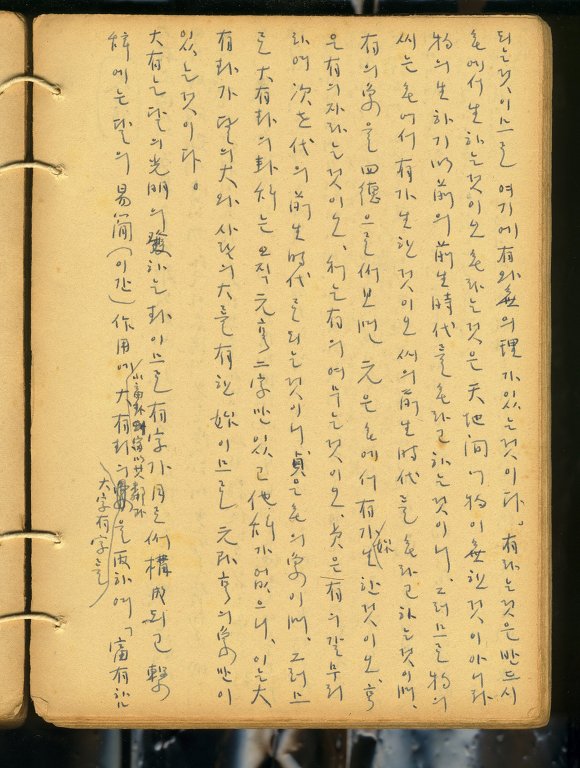 되는것이므로 여기에 有와 無의 理가 있는것이다。 有라는것은 반드시
無에서 生하는것이오 無라는것은 天地間에 物이 無한것이 아니라
物의 生하기 以前의 前生時代를 無라고 하는것이니、그러므로 物의
씨는 無에서 有가 生한것이오 씨의 前生時代를 無라고 하는것이며、
有의 象을 四德으로써 보면 元은 無에서 有가 始生한것이오、亨
은 有의 자라는것이오、利는 有의 여무는것이오、貞은 有의 갈무리
하여 次오代의 前生時代를 되는것이니 貞은 無의 象이며、그러므
로 大有卦의 卦辭는 오직 元亨 二字만 있고 他辭가 없으니、이는 大
有卦가 달의 大와 사람의 大를 有한 始이므로 元과 亨의 象만이
있는것이다。
大有는 달의 光明의 發하는 卦이므로 有字가 月로써 構成되고 繫
辭에는 달의 易簡(이간) 作用에 大有卦의 大字有字를 取하여 「富有